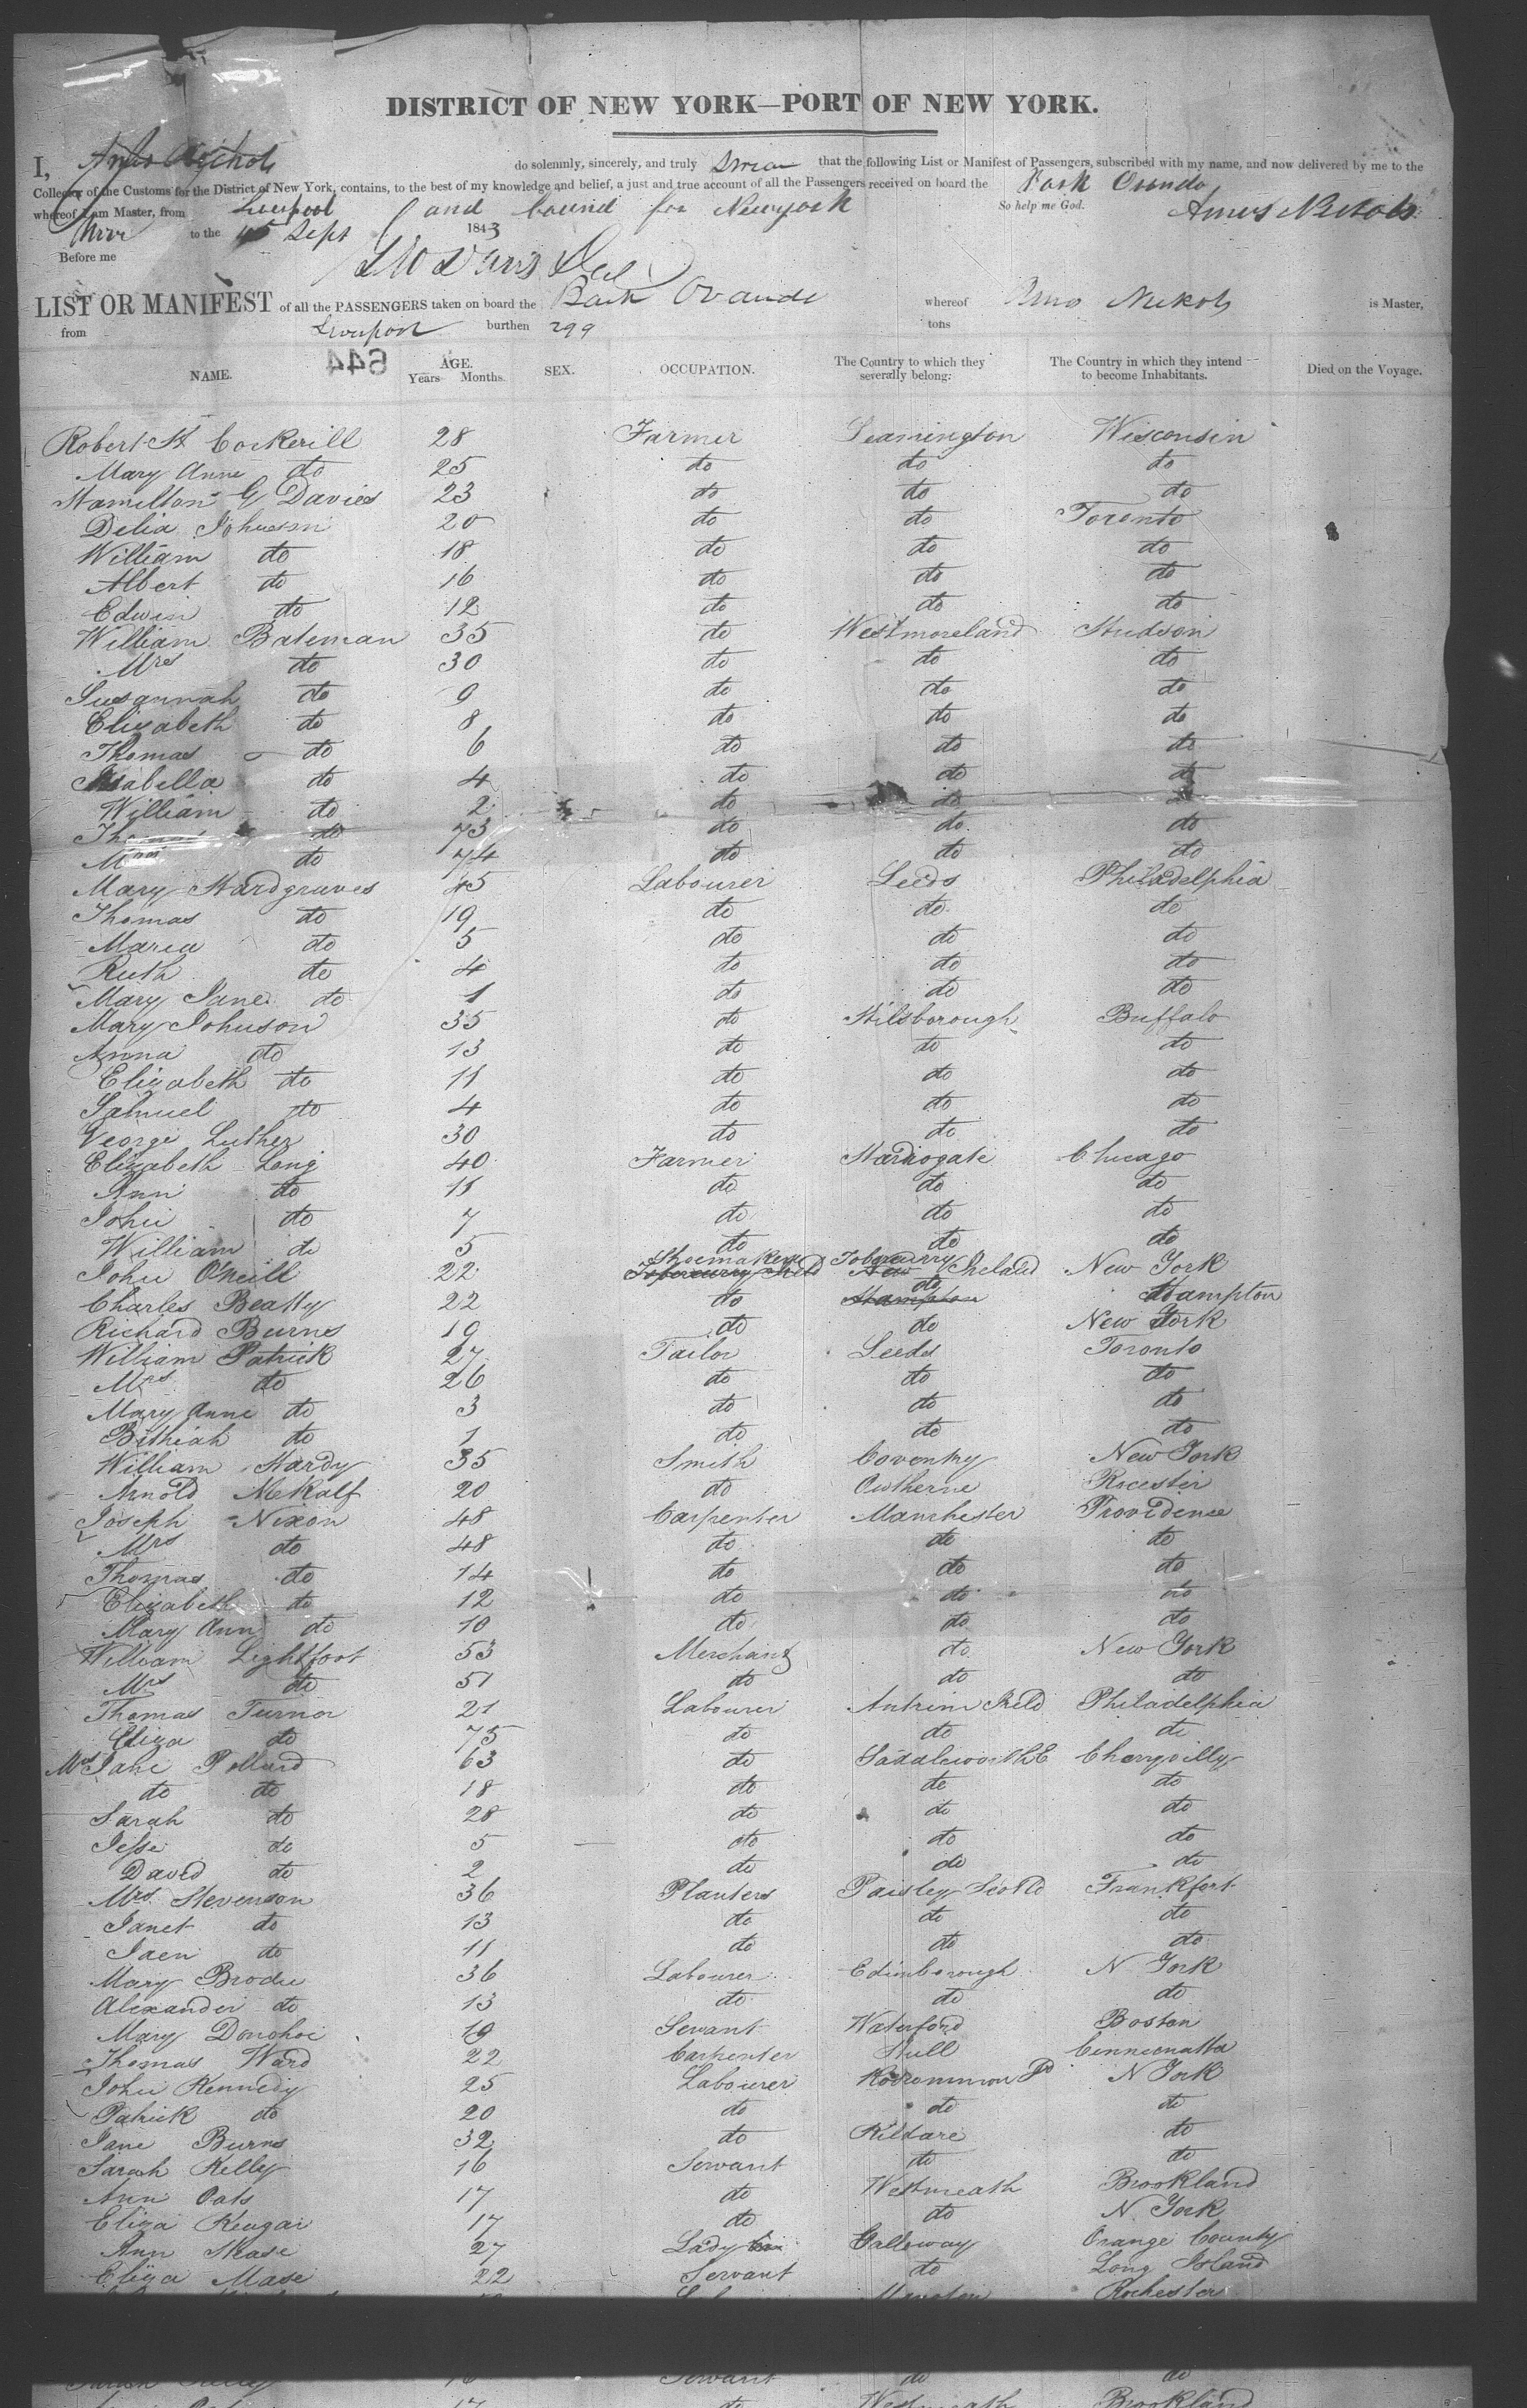 DISTRICT OF NEW YORK—PORT OF NEW YORK.
I, Amos Nichols do solemnly, sincerely, and truly Swear that the following List or Manifest of Passengers, subscribed with my name, and now delivered by me to the
Collector of the Customs for the District of New York, contains, to the best of my knowledge and belief, a just and true account of all the Passengers received on board the Bark
whereof I am Master, from Liverpool and bound for Newyork So help me God. Amos Nichols
to the 15 Sept 1843
Before me
LIST OR MANIFEST of all the PASSENGERS taken on board the Bark whereof Amos Nichols is Master,
from Liverpool burthen 299 tons
644
NAME. AGE. Years Months. SEX. OCCUPATION. The Country to which they severally belong: The Country in which they intend to become Inhabitants. Died on the Voyage.
Robert H Cockerill 28 Farmer Leamington Wisconsin
Mary Anne do 25 do do do
Hamilton G Davies 23 do do do
Delia Johnson 20 do do Toronto
William do 18 do do do
Albert do 16 do do do
Edwin do 12 do do do
William Bateman 35 do Westmoreland Hudson
Mrs do 30 do do do
Susannah do 9 do do do
Elizabeth do 8 do do do
Thomas do 6 do do do
Isabella do 4 do do do
William do 2 do do do
Thomas do 73 do do do
Mrs do 74 do do do
Mary Hardgraves 45 Labourer Leeds Philadelphia
Thomas do 19 do do do
Maria do 5 do do do
Ruth do 4 do do do
Mary Jane do 1 do do do
Mary Johnson 35 do Hilsborough Buffalo
Anna do 13 do do do
Elizabeth do 11 do do do
Samuel do 4 do do do
George Luther 30 do do do
Elizabeth Long 40 Farmer Harrogate Chicago
Ann do 11 do do do
John do 7 do do do
William do 5 do do do
John O'Neill 22 Shoemaker Tobercurry Ireland New York
Charles Beatty 22 do do Hampton
Richard Burns 19 do do New York
William Patrick 27 Tailor Leeds Toronto
Mrs do 26 do do do
Mary Anne do 3 do do do
Bithiah do 1 do do do
William Hardy 35 Smith Coventry New York
Arnold Mekalf 20 do Owtherne Rocester
Joseph Nixon 48 Carpenter Manchester Providence
Mrs do 48 do do do
Thomas do 14 do do do
Elizabeth do 12 do do do
Mary Ann do 10 do do do
William Lightfoot 53 Merchant do New York
Mrs do 51 do do do
Thomas Turnor 21 Labourer Antrim Ireld Philadelphia
Eliza do 75 do do do
Mrs Jane Pollard 63 do Saddleworth E Cherryvilly
do do 18 do do do
Sarah do 28 do do do
Jesse do 5 do do do
David do 2 do do do
Mrs Stevenson 36 Planters Paisley Scotld Frankfort
Janet do 13 do do do
Jaen do 11 do do do
Mary Brodie 36 Labourer Edinborough N York
Alexander do 13 do do do
Mary Donohoe 19 Servant Waterford Boston
Thomas Ward 22 Carpenter Hull Cennecnatta
John Kennedy 25 Labourer N York
Patrick do 20 do do do
Jane Burns 32 do Kildare do
Sarah Kelly 16 Servant do do
Ann Oats 17 do Westmeath Brookland
Eliza Keugar 17 do do N York
Ann Mase 27 Lady Galloway Orange County
Eliza Mase 22 Servant do Long Island
Rochester
Servant do do
17 do Westmeath Brookland